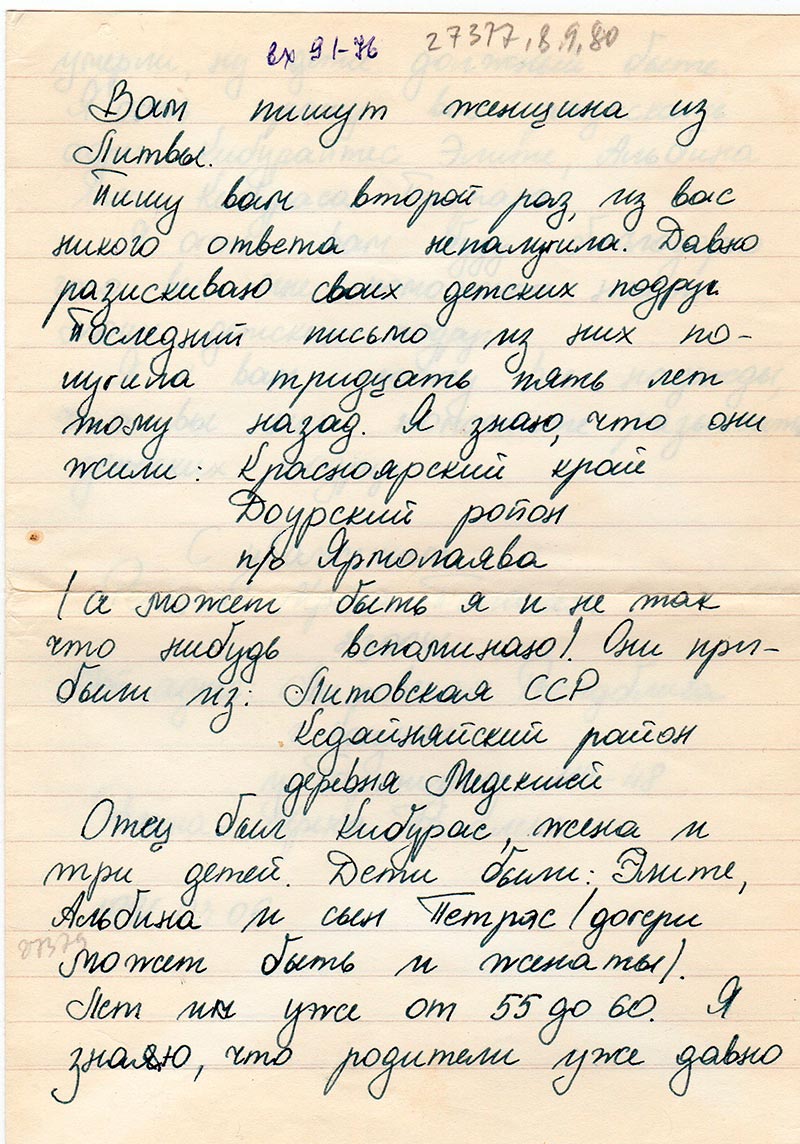 вх 91-76 27377, 8.9.80
Вам пишут женщина из
Литвы.
Пишу вам второй раз, из вас
никого ответа неполучила. Давно
разискиваю своих детских подруг.
Последний письмо из них по-
лучила тридцать пять лет
тому назад. Я знаю, что они
жили: Красноярский край
Доурский ройон
п/о Ярмолаява
(а может быть я и не так
что нибудь вспоминаю). Они при-
были из: Литовская ССР
Кедайняйский район
деревня Медекшей
Отец был Кибурас, жена и
три детей. Дети были: Элите,
Альбина и сын Петряс (дочери
может быть и женаты).
27379
Лет им уже от 55 до 60. Я
знаю, что родители уже давно